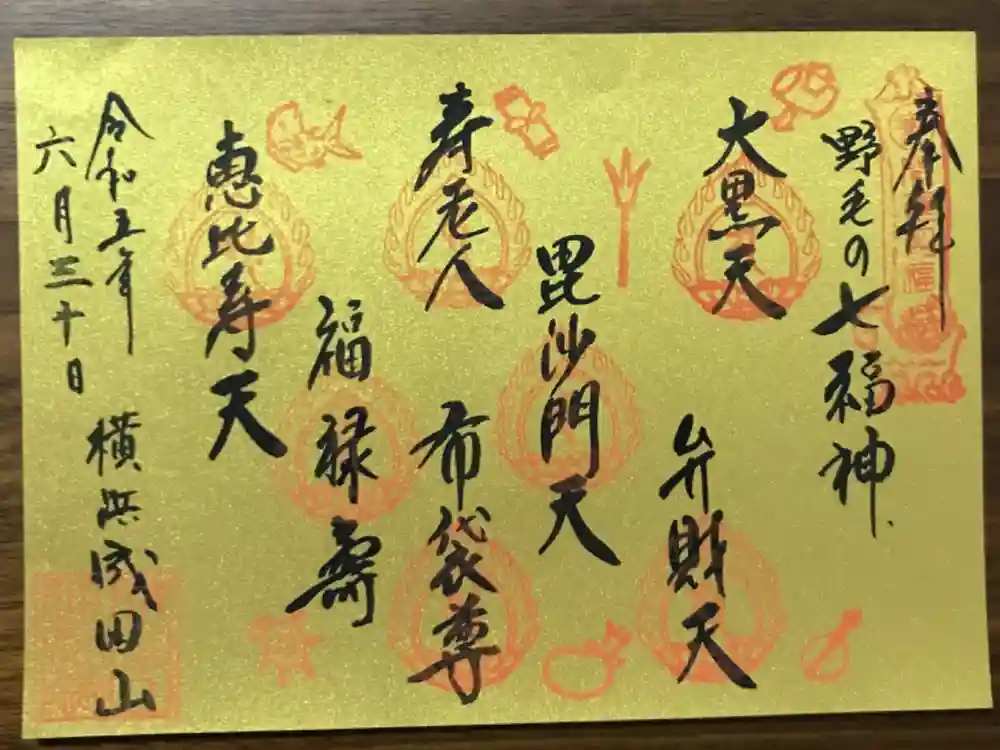 奉拝
野毛の七福神
大黒天
弁財天
毘沙門天
寿老人
布袋尊
福禄壽
恵比寿天
令和五年
六月三十日
横浜成田山